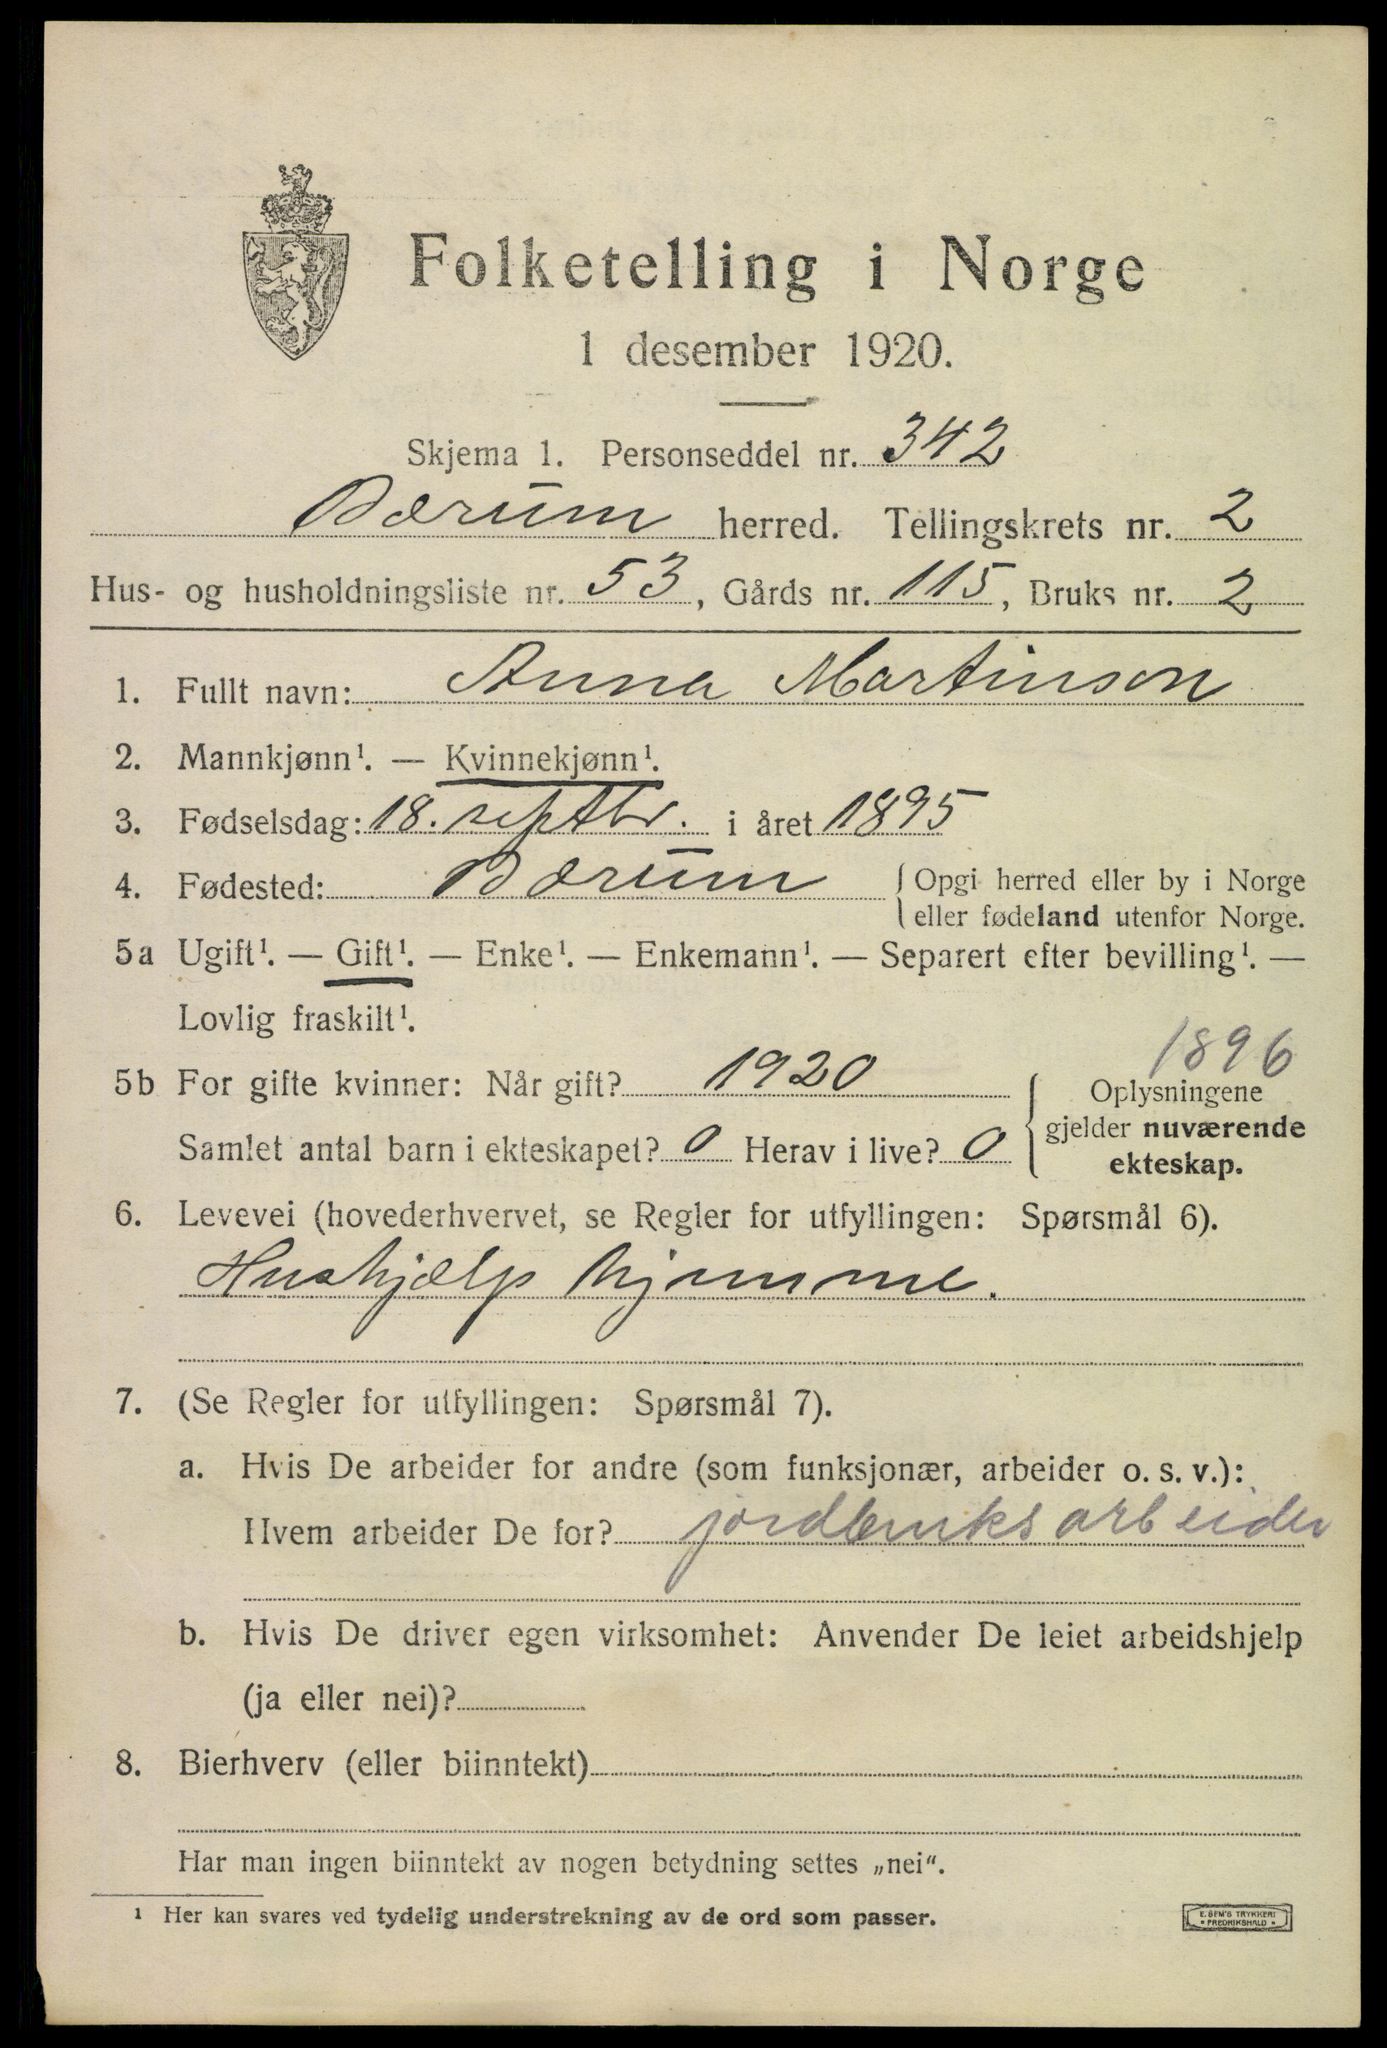 Folketelling i Norge
1 desember 1920.
Skjema 1. Personseddel nr. 342
Bærum herred. Tellingskrets nr. 2
Hus- og husholdningsliste nr. 53, Gårds nr. 115, Bruks nr. 2
1. Fullt navn: Anna Martinson
2. Mannkjønn¹. — Kvinnekjønn¹.
3. Fødselsdag: 18. septbr. i året 1895
4. Fødested: Bærum { Opgi herred eller by i Norge
eller fødeland utenfor Norge.
5a Ugift¹. — Gift¹. — Enke¹. — Enkemann¹. — Separert efter bevilling¹. —
Lovlig fraskilt¹.
1896
5b For gifte kvinner: Når gift? 1920 { Oplysningene
Samlet antal barn i ekteskapet? 0 Herav i live? 0 gjelder nuværende
ekteskap.
6. Levevei (hovederhvervet, se Regler for utfyllingen: Spørsmål 6).
Hushjælp hjemme.
7. (Se Regler for utfyllingen: Spørsmål 7).
a. Hvis De arbeider for andre (som funksjonær, arbeider o. s. v.):
Hvem arbeider De for? jordbruksarbeider
b. Hvis De driver egen virksomhet: Anvender De leiet arbeidshjelp
(ja eller nei)?
8. Bierhverv (eller biinntekt)
Har man ingen biinntekt av nogen betydning settes „nei“.
¹ Her kan svares ved tydelig understrekning av de ord som passer.
E. SEM'S TRYKKERI
• FREDRIKSHALD •